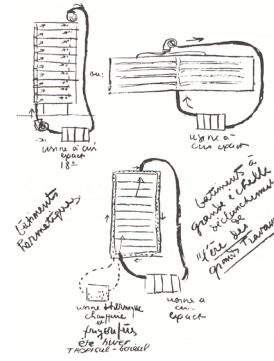 ou:
usine à air
exact
18°
usine à
air exact
bâtiments
hermétiques
bâtiments à
grande échelle
déclanchement
de
l'ère des
grands travaux
usine thermique
chauffée
et
frigorifiés
été hiver
TROPICAL-boréal
usine à
air-
exact